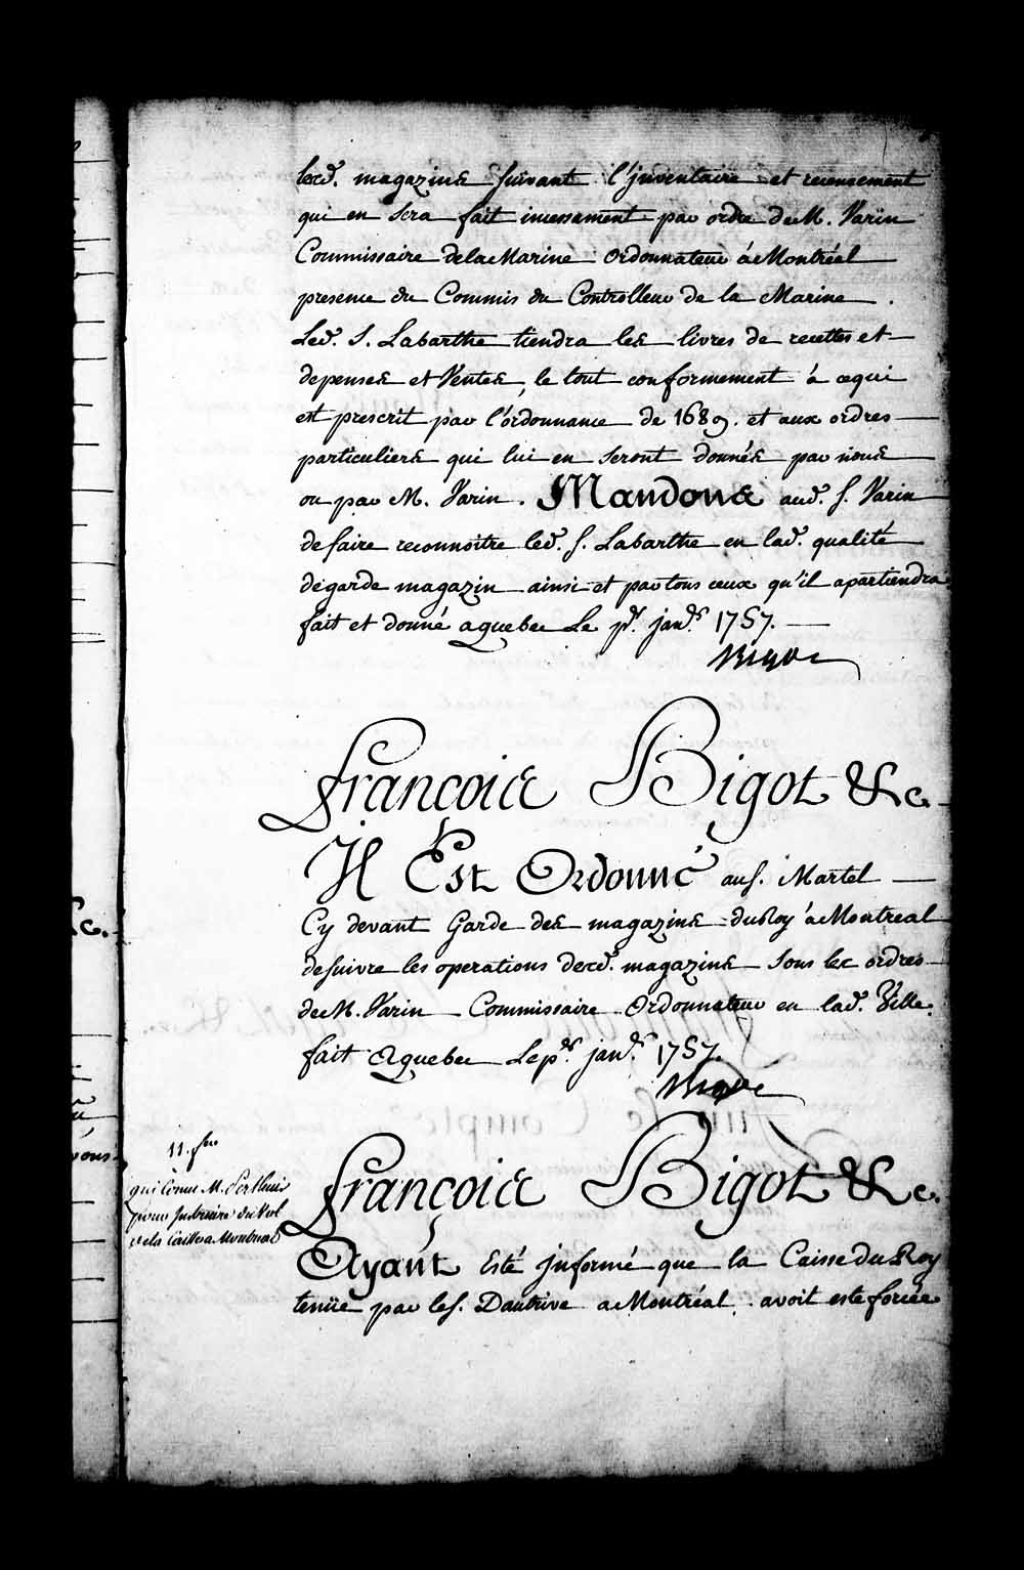 lesd. magazins suivant l'inventaire et recensement
qui en sera fait incessament par ordre de M. Varin
Commissaire de la Marine ordonnateur à Montréal
presence du Commis du Controlleur de la Marine.
Led. S. Labarthe tiendra les livres de recettes et
depenses et Ventes, le tout conformement à ce qui
est prescrit par l'ordonnance de 1689. et aux ordres
particuliers qui lui en seront donnés par nous
ou par M. Varin. Mandons aud. S. Varin
de faire reconnoitre led. S. Labarthe en lad. qualité
de garde magazin ainsi et par tous ceux qu'il apartiendra
fait et donné a quebec Le pr. janr. 1757.
Bigot
François Bigot &c.
Il Est Ordonné au S. Martel
Cy devant Garde des magazins du Roy à Montreal
de suivre les operations desd. magazins sous les ordres
de M. Varin Commissaire Ordonnateur en lad. Ville.
fait a quebec Le pr. janr. 1757.
Bigot
11. fer
qui Comet M. Perthuis
pour Instruire du Vol
de la Caisse a Montreal
François Bigot &c.
Ayant Esté informé que la Caisse du Roy
tenüe par le S. Dautrive a Montréal avoit esté forcée